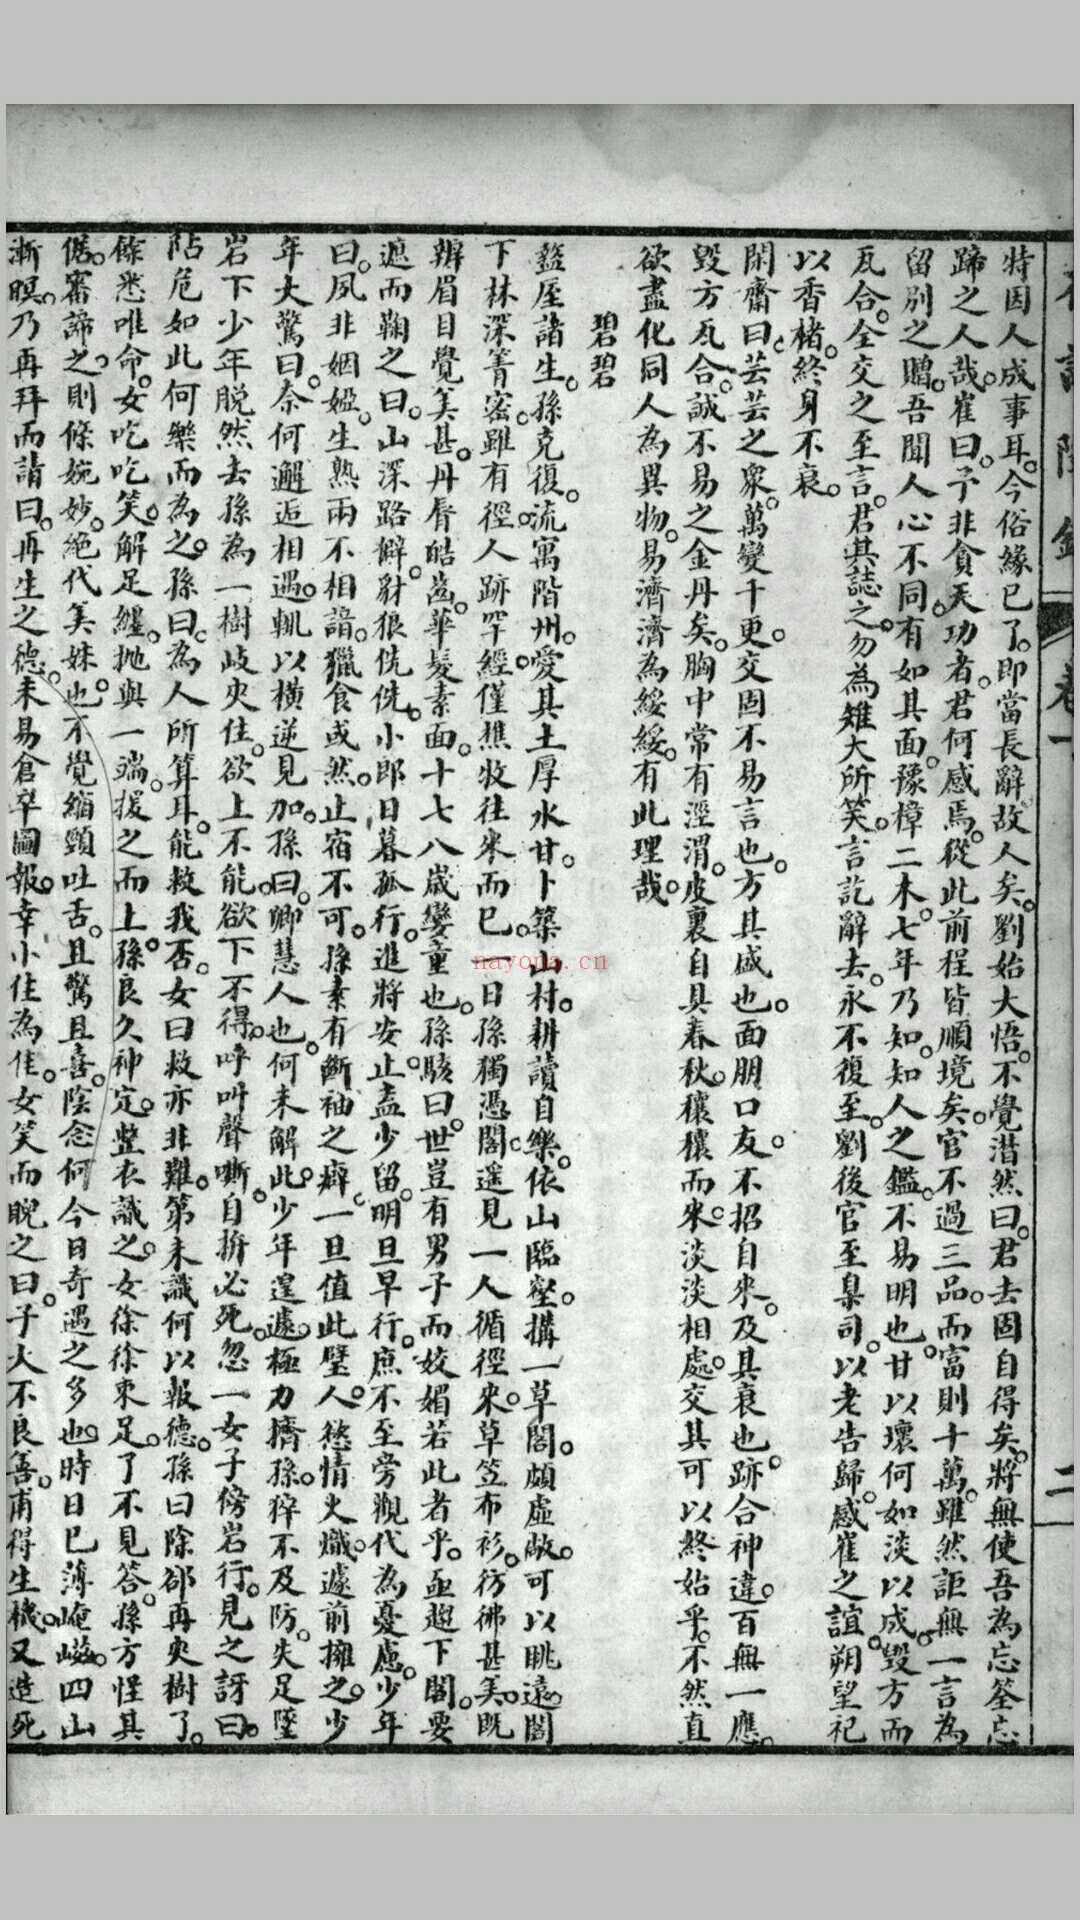 夜譚隨錄 卷一 二
特因人成事耳。今俗緣已了。即當長辭故人矣。劉始大悟。不覺潸然曰。君去固自得矣。將無使吾為忘筌忘
蹄之人哉。崔曰。予非貪天功者。君何感焉。從此前程皆順境矣。官不過三品。而富則十萬。雖然詎無一言為
留別之贈。吾聞人心不同。有如其面。豫樟二木。七年乃知。知人之鑑。不易明也。甘以壞何如淡以成。毀方而
瓦合。全交之至言。君其誌之。勿為雉大所笑。言訖辭去。永不復至。劉後官至臬司。以老告歸。感崔之誼。朔望祀
以香楮。終身不哀。
閑齋曰。芸芸之衆。萬變千更。交固不易言也。方其盛也。面朋口友。不招自來。及其衰也。跡合神違。百無一應。
毀方瓦合。誠不易之金丹矣。胸中常有涇渭。皮裏自具春秋。穰穰而來。淡淡相處。交其可以終始乎。不然直
欲盡化同人為異物。易濟濟為綏綏。有此理哉。
碧碧
盩厔諸生。孫克復。流寓階州。愛其土厚水甘。卜築山村。耕讀自樂。依山臨壑。搆一草閣。頗虛敞。可以眺遠。閣
下林深箐密。雖有徑。人跡罕經。僅樵牧往來而已。一日孫獨憑閣。遥見一人循徑來。草笠布衫。彷彿甚美。既
辨眉目。覺美甚。丹脣皓齒。華髮素面。十七八歲孌童也。孫駭曰。世豈有男子而姣媚若此者乎。亟趨下閣。要
遮而鞠之曰。山深路僻。豺狼侁侁。小郎日暮孤行。進將安止。盍少留。明旦早行。庶不至旁觀代為憂慮。少年
曰。夙非姻婭。生熟兩不相諳。獵食或然。止宿不可。孫素有斷袖之癖。一旦值此璧人。慾情火熾。遽前擁之。少
年大驚曰。奈何邂逅相遇。輒以橫逆見加。孫曰。卿慧人也。何未解此。少年遑遽。極力擠孫。猝不及防。失足墜
岩下。少年脫然去。孫為一樹岐夾住。欲上不能。欲下不得。呼叫聲嘶。自拚必死。忽一女子傍岩行。見之訝曰。
阽危如此何樂而為之。孫曰。為人所算耳。能救我否。女曰救亦非難。第未識何以報德。孫曰除卻再夾樹了。
餘悉唯命。女吃吃笑。解足纏。拋與一端。援之而上。孫良久神定。整衣識之。女徐徐束足。了不見答。孫方怪其
倨。審諦之。則條婉妙。絕代美姝也。不覺縮頸吐舌。且驚且喜。陰念何今日奇遇之多也。時日已薄崦嵫。四山
漸暝。乃再拜而請曰。再生之德。未易倉卒圖報。幸小住為佳。女笑而睨之曰。子大不良善。甫得生機。又造死
nayona.cn